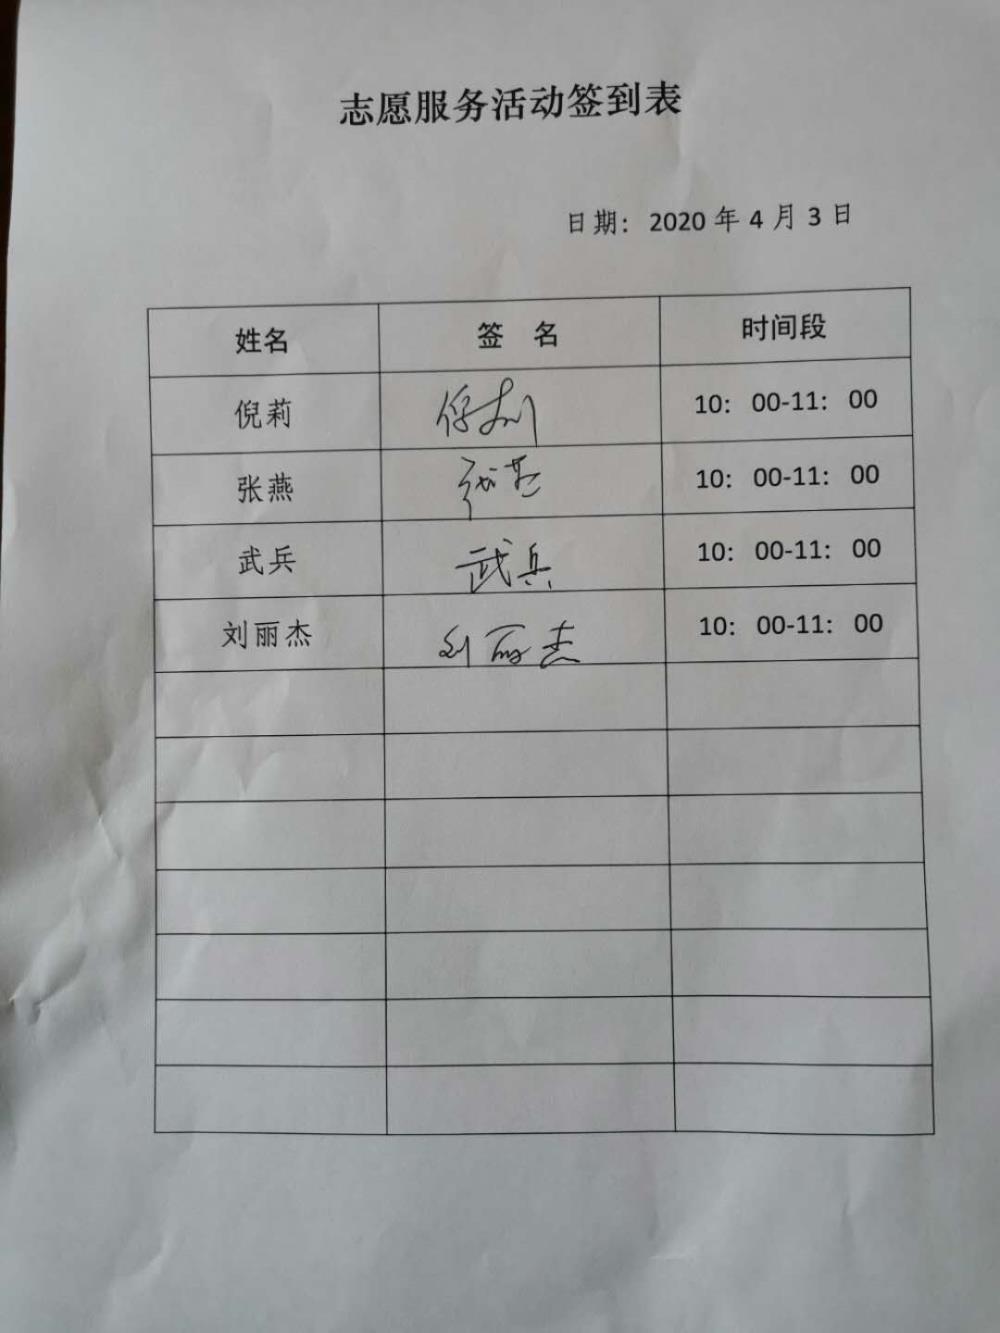 志愿服务活动签到表
日期：2020 年 4 月 3 日
姓名 签 名 时间段
倪莉 倪莉 10：00-11：00
张燕 张燕 10：00-11：00
武兵 武兵 10：00-11：00
刘丽杰 刘丽杰 10：00-11：00